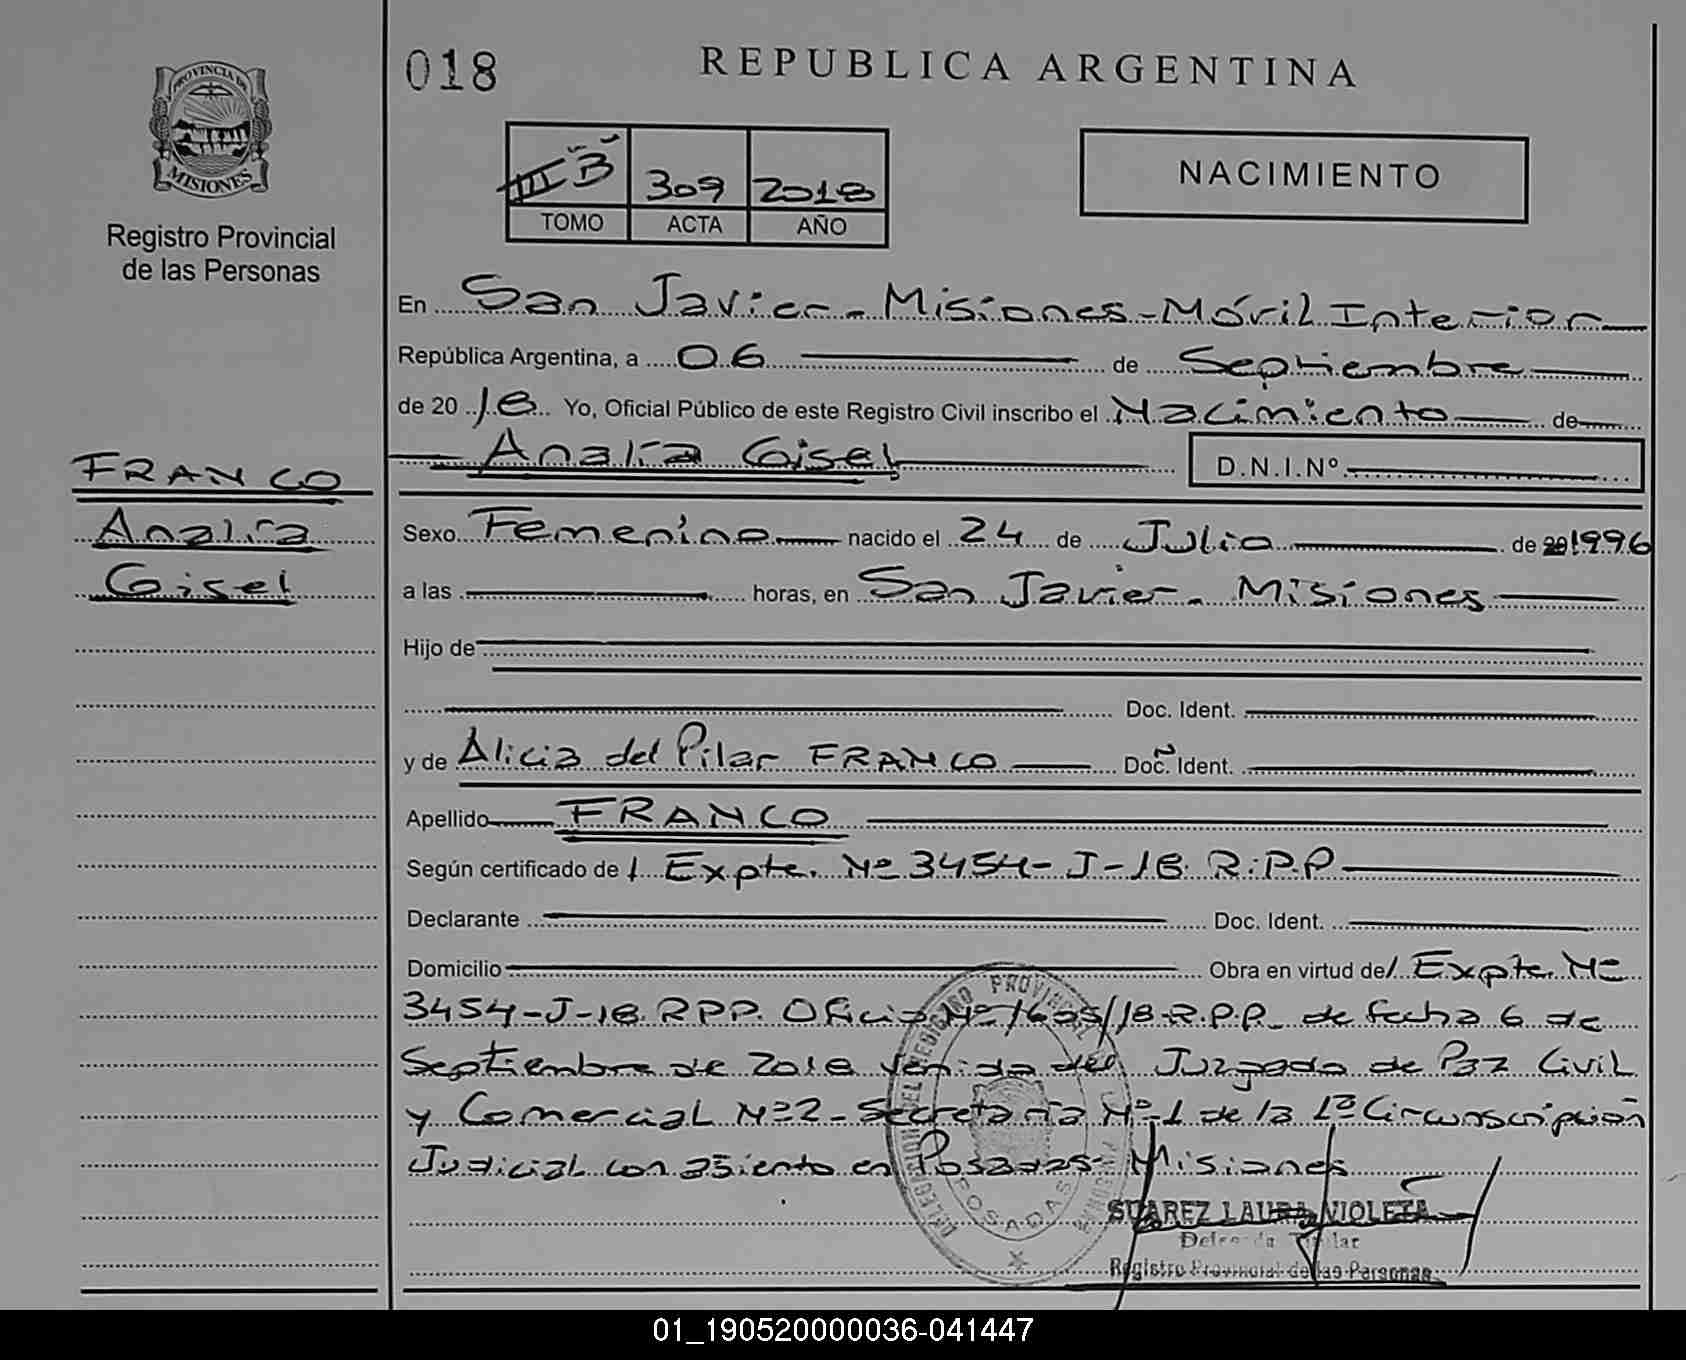 018
REPUBLICA ARGENTINA
PROVINCIA DE
MISIONES
Registro Provincial
de las Personas
III "B" 309 2018
TOMO ACTA AÑO
NACIMIENTO
En San Javier - Misiones - Móvil Interior
República Argentina, a 06 de Septiembre
de 2018 Yo, Oficial Público de este Registro Civil inscribo el Nacimiento de
Analía Gisel D.N.I.Nº
FRANCO
Analía
Gisel
Sexo Femenino nacido el 24 de Julio de 20 1996
a las horas, en San Javier - Misiones
Hijo de
Doc. Ident.
y de Alicia del Pilar FRANCO Doc. Ident.
Apellido FRANCO
Según certificado de / Expte. Nº 3454-J-18 R.P.P
Declarante Doc. Ident.
Domicilio Obra en virtud de / Expte. Nº
3454-J-18 RPP. Oficio Nº /18-R.P.P. de fecha 6 de
Septiembre de 2018 venido del Juzgado de Paz Civil
y Comercial Nº2 - Secretaría Nº 1 de la 1ª Circunscripción
Judicial con asiento en Posadas - Misiones
DELEGACION DEL REGISTRO PROVINCIAL DE LAS PERSONAS
POSADAS
SUAREZ LAURA VIOLETA
Titular
Registro Provincial de las Personas
01_190520000036-041447